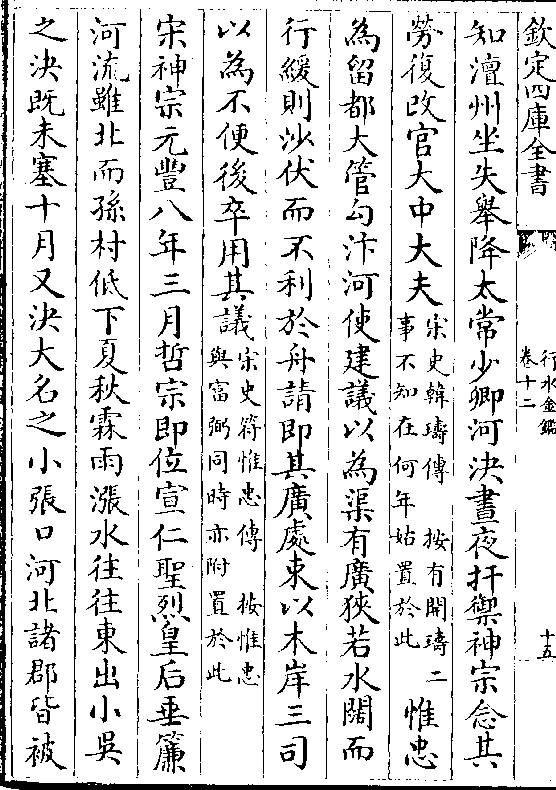 欽定四庫全書
行水金鑑
卷十二
十五
知澶州坐失舉降太常少卿河決晝夜扞禦神宗念其
勞復改官大中大夫宋史韓璹傳 按有開璹二
事不知在何年姑置於此惟忠
為留都大管勾汴河使建議以為渠有廣狹若水闊而
行緩則沙伏而不利於舟請即其廣處束以木岸三司
以為不便後卒用其議宋史符惟忠傳 按惟忠
與富弼同時亦附置於此
宋神宗元豐八年三月哲宗即位宣仁聖烈皇后垂簾
河流雖北而孫村低下夏秋霖雨漲水往往東出小吳
之決既未塞十月又決大名之小張口河北諸郡皆被